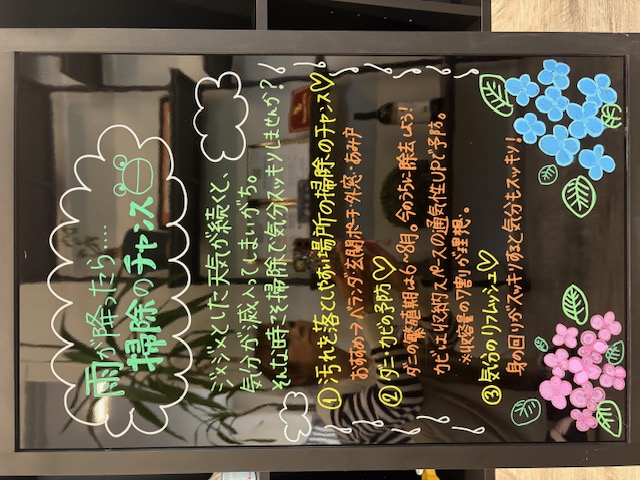 雨が降ったら....
掃除のチャンス
ジメジメとした天気が続くと、
気分が滅入ってしまいがち。
そんな時こそ掃除で気分スッキリしませんか?
①汚れを落としやすい場所の掃除のチャンス♡
おすすめ→ベランダ・玄関ポーチ・外窓・あみ戸
②ダニ・カビの予防♡
ダニの繁殖期は6~8月。今のうちに除去しよう!
カビは収納スペースの通気性UPで予防。
※収容量の7割が理想。
③気分のリフレッシュ♡
身の回りがスッキリすると気分もスッキリ!